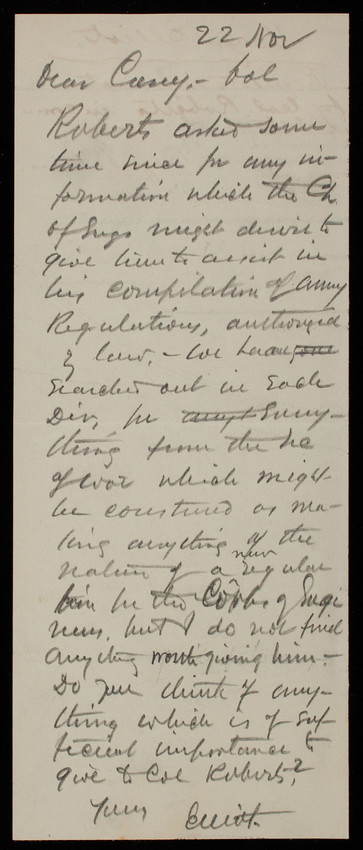 22 Nov
Dear Casey,- Col
Roberts asked some
time since for any in-
formation which the Ch
of Engs might desire to
give him to assist in
his compilation of Army
Regulations, authorized
by law, - We have
searched out in each
Div. for every-
thing from the Sec
of War which might
be construed as ma-
king anything of the
nature of a new regula
tion for the Corps of Engi
neers, but I do not find
anything worth giving him.-
Do you think of any-
thing which is of suf
ficient importance to
give to Col Roberts?
Yours
Elliot.